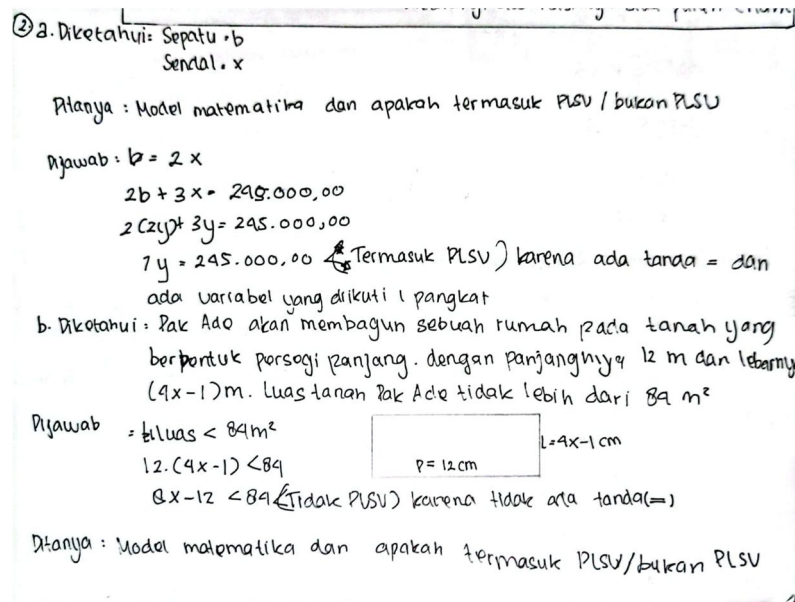 ② a. Diketahui: Sepatu = b
Sendal = x
Ditanya : Model matematika dan apakah termasuk PLSV / bukan PLSV
Dijawab : b = 2 x
2b + 3x = 245.000,00
2(2y)+ 3y = 245.000,00
7y = 245.000,00 (Termasuk PLSV) karena ada tanda = dan
ada variabel yang diikuti 1 pangkat
b. Diketahui : Pak Ade akan membagun sebuah rumah pada tanah yang
berbentuk persegi panjang. dengan panjangnya 12 m dan lebarny
(4x-1)m. Luas tanah Pak Ade tidak lebih dari 84 m²
Dijawab = Luas < 84m²
12.(4x-1) <84
8x-12 <84 (Tidak PLSV) karena tidak ada tanda(=)
L=4x-1 cm
P= 12cm
Ditanya : Model matematika dan apakah termasuk PLSV/bukan PLSV